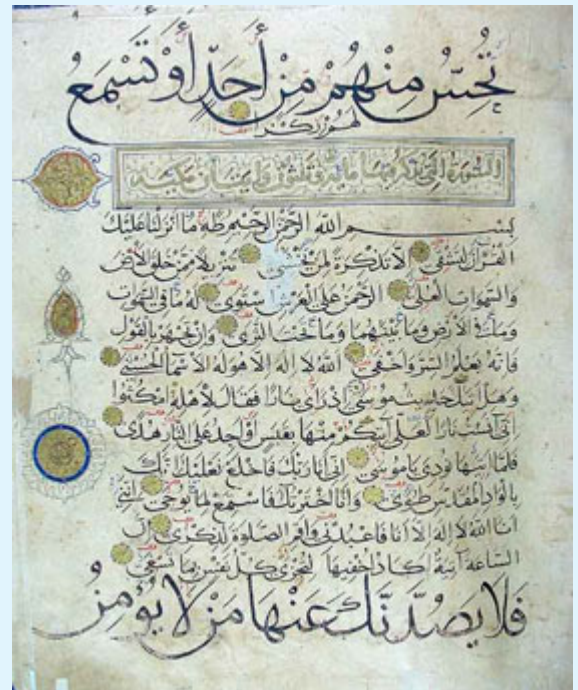 تُحِسُّ مِنْهُمْ مِنْ أَحَدٍ أَوْ تَسْمَعُ
لهم ركزا
السورة التي
بسم الله الرحمن الرحيم طه ما انزلنا عليك
القرآن لتشقى الا تذكرة لمن يخشى تنزيلا ممن خلق الارض
والسموات العلى الرحمن على العرش استوى له ما في السموات
وما في الارض وما بينهما وما تحت الثرى وان تجهر بالقول
فانه يعلم السر واخفى الله لا اله الا هو له الاسما الحسنى
وهل اتيك حديث موسى اذ راى نارا فقال لاهله امكثوا
انى آنست نارا لعلى آتيكم منها بقبس او اجد على النار هدى
فلما اتيها نودى ياموسى انى انا ربك فاخلع نعليك انك
بالواد المقدس طوى وانا اخترتك فاستمع لما يوحى اننى
انا الله لا اله الا انا فاعبدنى واقم الصلوة لذكرى ان
الساعة آتية اكاد اخفيها لتجزى كل نفس بما تسعى
فَلَا يَصُدَّنَّكَ عَنْهَا مَنْ لَا يُؤْمِنُ